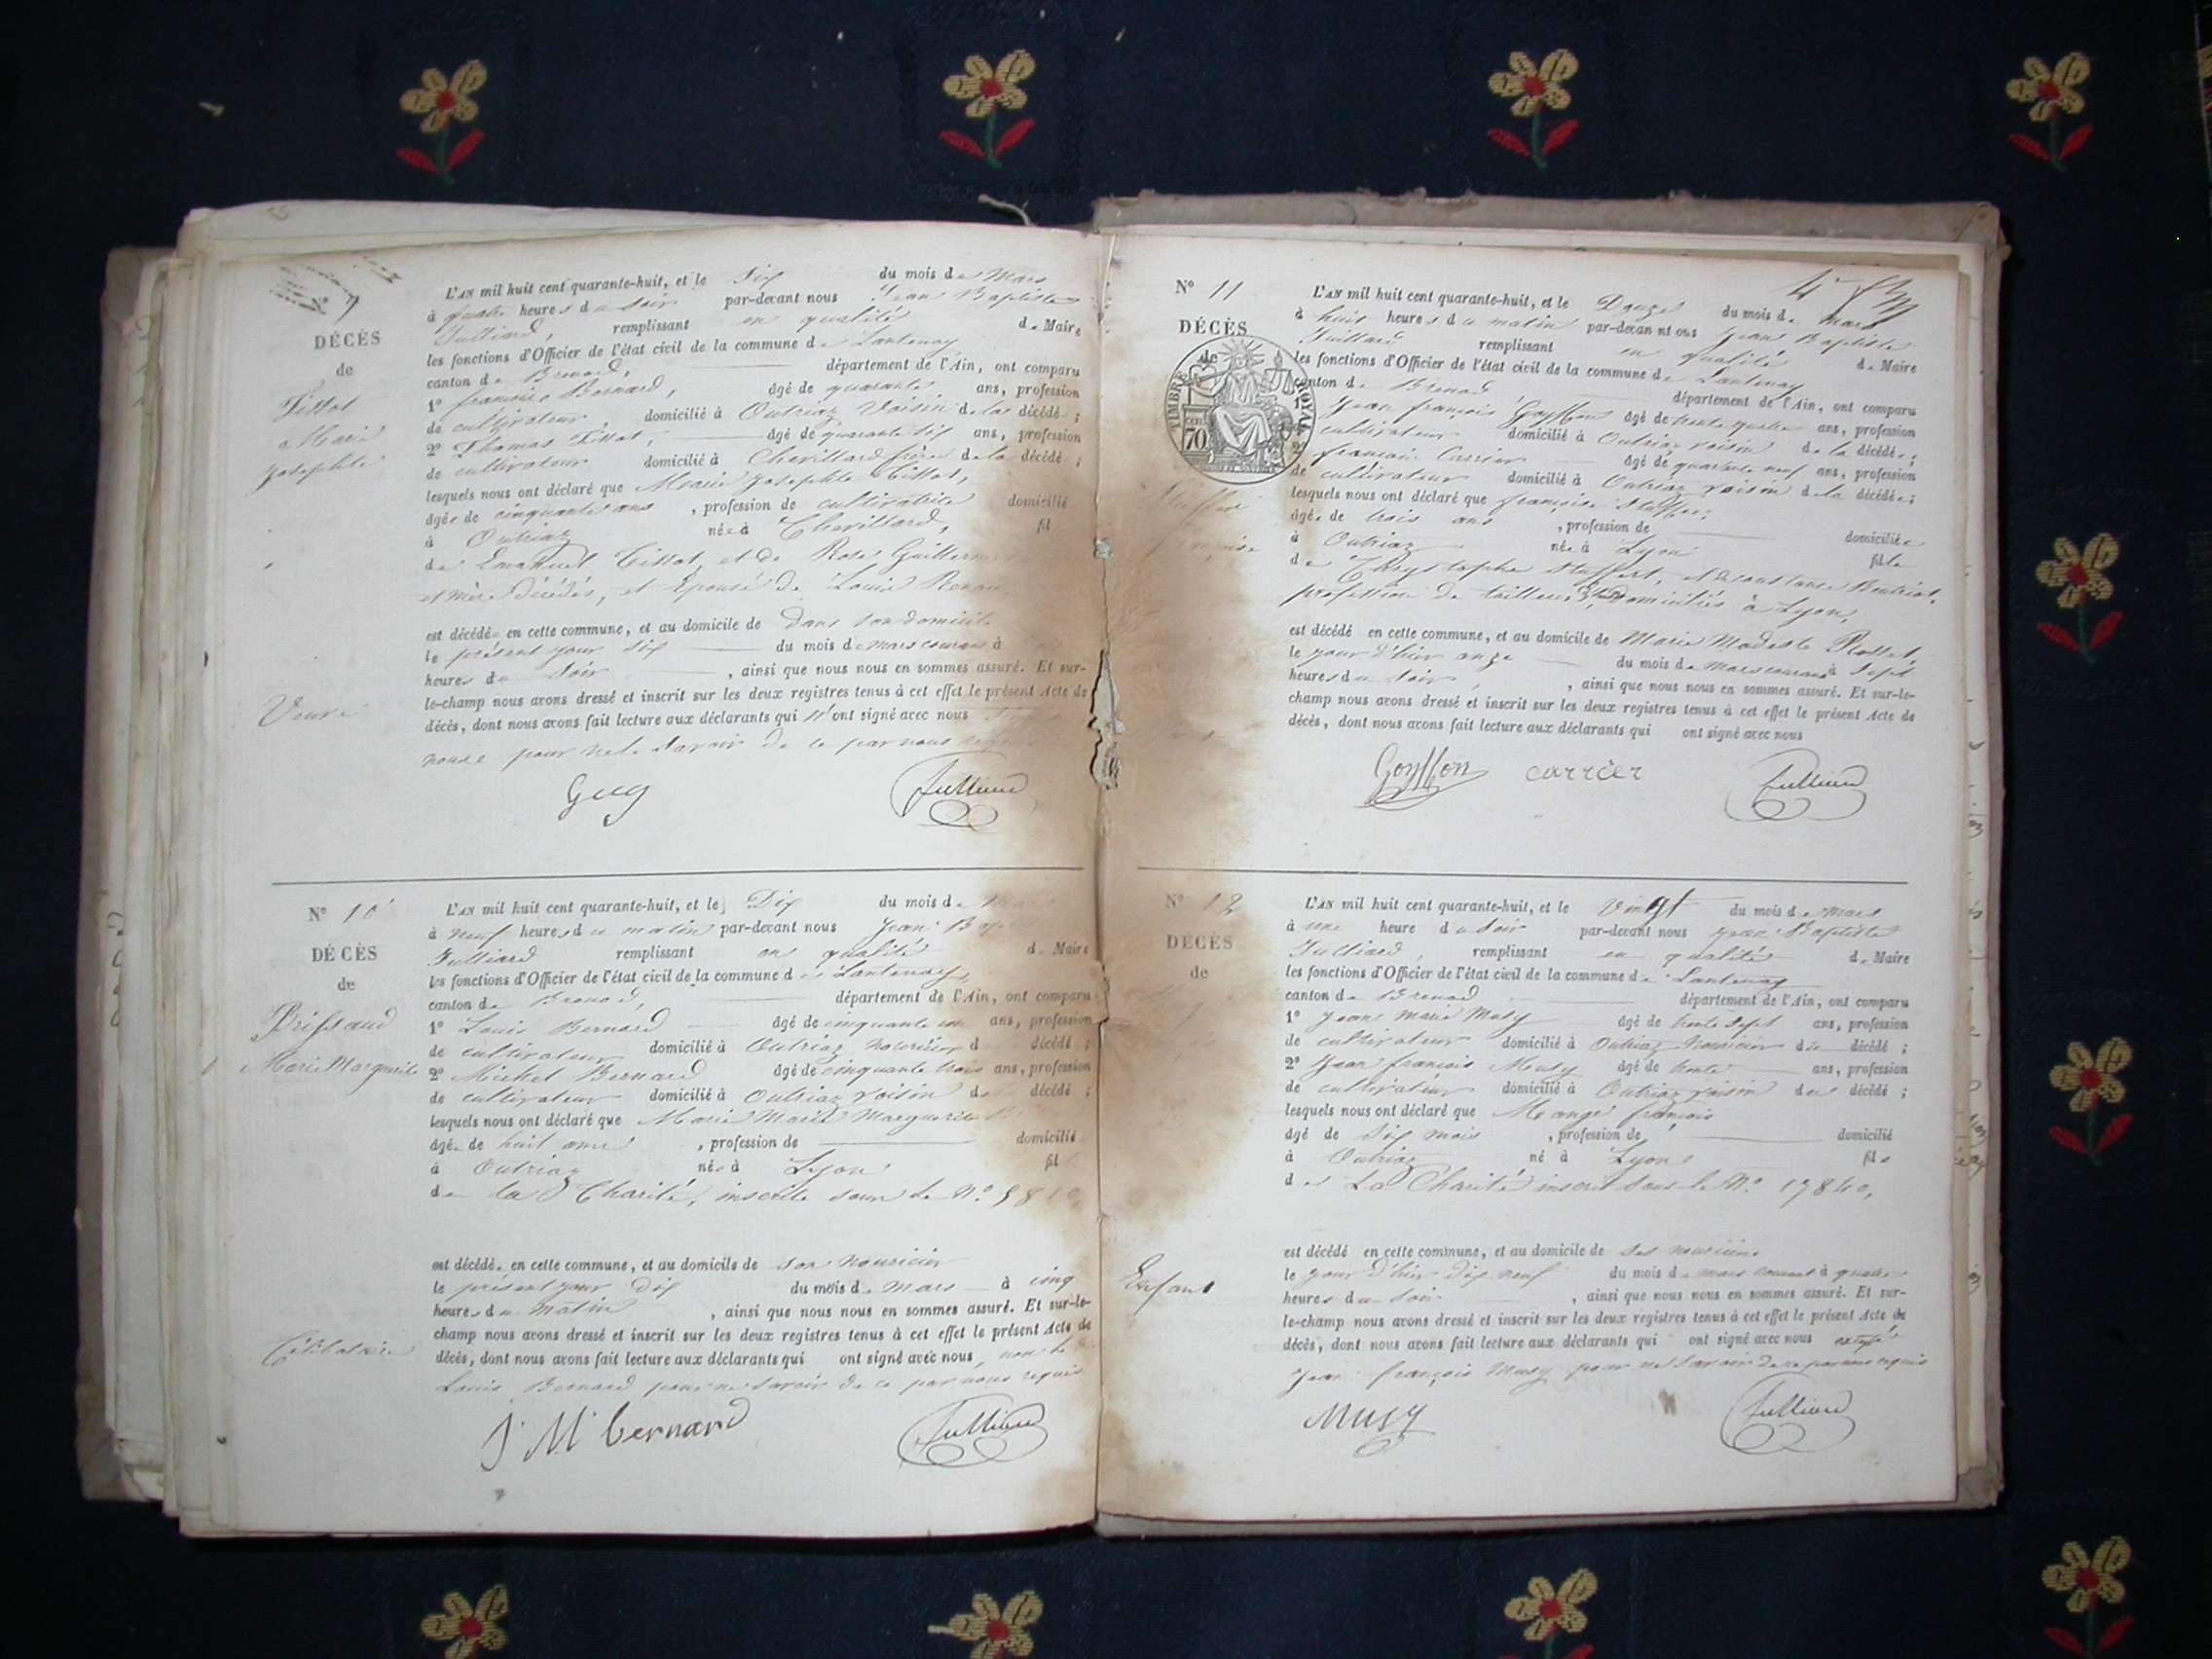 N° 9
DÉCÈS
de
Tissot
Marie
Josephte
Veuve
L'AN mil huit cent quarante-huit, et le Six du mois de Mars
à quatre heures du Soir par-devant nous Jean Baptiste
Julliard, remplissant en qualité de Maire
les fonctions d'Officier de l'état civil de la commune de Lantenay
canton de Brenod, département de l'Ain, ont comparu
1° françois Bernard, âgé de quarante ans, profession
de cultivateur, domicilié à Outriaz Voisin de la décédé ;
2° Thomas Tissot, âgé de quarante Six ans, profession
de cultivateur domicilié à Chevillard frère de la décédé ;
lesquels nous ont déclaré que Marie Josephte Tissot,
âgée de cinquante ans, profession de cultivatrice domicilié
à Outriaz née à Chevillard, fil
de Emanuel Tissot, et de Rose
et mère décédés, et Epouse de Louis
est décédée en cette commune, et au domicile de dans son domicile
le présent jour Six du mois de mars courant à
heures du Soir, ainsi que nous nous en sommes assuré. Et sur-
le-champ nous avons dressé et inscrit sur les deux registres tenus à cet effet le présent Acte de
décès, dont nous avons fait lecture aux déclarants qui n'ont signé avec nous
pour ne le Savoir de ce par nous
Gug Julliard
N° 10
DÉCÈS
de
Brissaud
Marie Marguerite
Célibataire
L'AN mil huit cent quarante-huit, et le Dix du mois de Mars
à neuf heures du matin par-devant nous Jean Bap
Julliard remplissant en qualité de Maire
les fonctions d'Officier de l'état civil de la commune de Lantenay,
canton de Brenod, département de l'Ain, ont comparu
1° Louis Bernard âgé de cinquante ans, profession
de cultivateur domicilié à Outriaz nouricier d décédé ;
2° Michel Bernard âgé de cinquante trois ans, profession
de cultivateur domicilié à Outriaz voisin de décédé ;
lesquels nous ont déclaré que Marie Marguerite
âgée de huit ans, profession de domicilié
à Outriaz née à Lyon fil
de la Charité, inscrite sous le N°
est décédée en cette commune, et au domicile de son nouricier
le présent jour dix du mois de Mars à cinq
heures du Matin, ainsi que nous nous en sommes assuré. Et sur-le-
champ nous avons dressé et inscrit sur les deux registres tenus à cet effet le présent Acte de
décès, dont nous avons fait lecture aux déclarants qui ont signé avec nous,
Louis Bernard pour ne Savoir de ce par nous requis
J M bernard Julliard
N° 11
DÉCÈS
de
TIMBRE ROYAL
70
L'AN mil huit cent quarante-huit, et le Douze du mois de mars
à huit heures du matin par-devan nt ous Jean Baptiste
Juilliard remplissant en qualité de Maire
les fonctions d'Officier de l'état civil de la commune de Lantenay
canton de Brenod, département de l'Ain, ont comparu
Jean françois Goyffon âgé de trente quatre ans, profession
cultivateur domicilié à Outriaz voisin de la décédée ;
2° françois Carrier âgé de quarante neuf ans, profession
de cultivateur domicilié à Outriaz voisin de la décédée ;
lesquels nous ont déclaré que françoise
âgée de trois ans, profession de domiciliée
à Outriaz née à Lyon fille
de
profession de tailleur domiciliés à Lyon,
est décédé en cette commune, et au domicile de Marie Modeste Rosset,
le jour d'hier onze du mois de mars courant à Sept
heures du Soir, ainsi que nous nous en sommes assuré. Et sur-le-
champ nous avons dressé et inscrit sur les deux registres tenus à cet effet le présent Acte de
décès, dont nous avons fait lecture aux déclarants qui ont signé avec nous
Goyffon carrier Julliard
N° 12
DÉCÈS
de
Enfant
L'AN mil huit cent quarante-huit, et le Vingt du mois de Mars
à une heure du Soir par-devant nous Jean Baptiste
Julliard, remplissant en qualité de Maire
les fonctions d'Officier de l'état civil de la commune de Lantenay
canton de Brenod département de l'Ain, ont comparu
1° Jean Marie Musy âgé de trente Sept ans, profession
de cultivateur domicilié à Outriaz Nouricier du décédé ;
2° Jean françois Musy âgé de trente ans, profession
de cultivateur domicilié à Outriaz voisin du décédé ;
lesquels nous ont déclaré que Mange françois
âgé de Six mois, profession de domicilié
à Outriaz né à Lyon fils
de La Charité inscrit Sous le N° 17840,
est décédé en cette commune, et au domicile de Ses
le jour d'hier dix neuf du mois de mars courant à quatre
heures du Soir, ainsi que nous nous en sommes assuré. Et sur-
le-champ nous avons dressé et inscrit sur les deux registres tenus à cet effet le présent Acte de
décès, dont nous avons fait lecture aux déclarants qui ont signé avec nous excepté
Jean françois Musy pour ne Savoir de ce par nous requis
Musy Julliard